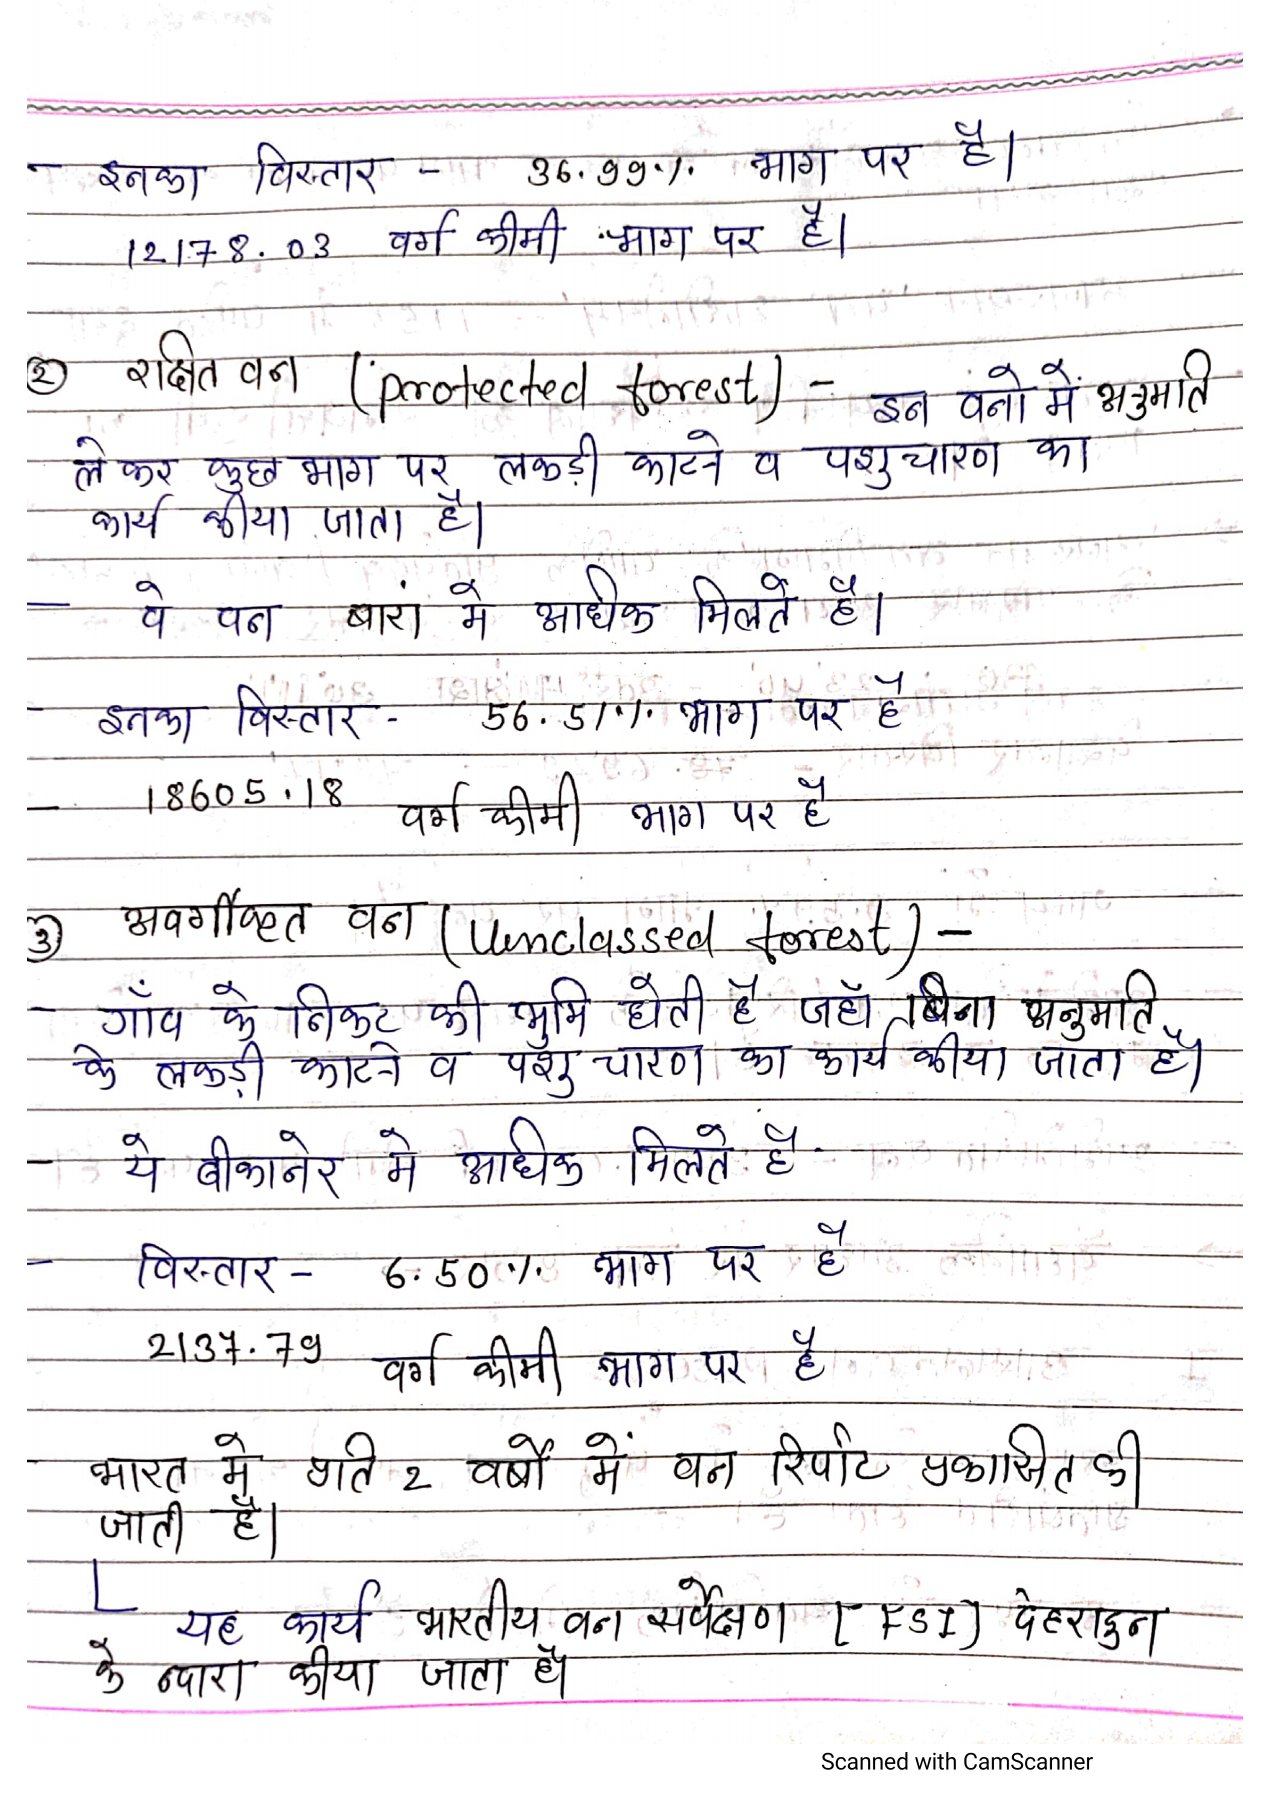 - इनका विस्तार - 36.99% भाग पर है।
12178.03 वर्ग कीमी भाग पर है।
② रक्षित वन (protected forest) - इन वनो में अनुमति
लेकर कुछ भाग पर लकड़ी काटने व पशुचारण का
कार्य कीया जाता है।
- ये वन बारां मे अधिक मिलते है।
- इनका विस्तार - 56.51% भाग पर है
- 18605.18 वर्ग कीमी भाग पर है
③ अवर्गीकृत वन (Unclassed forest) -
- गाँव के निकट की भुमि होती है जहाँ बिना अनुमति
के लकड़ी काटने व पशुचारण का कार्य कीया जाता है।
- ये बीकानेर मे अधिक मिलते है
- विस्तार - 6.50% भाग पर है
2137.79 वर्ग कीमी भाग पर है
- भारत मे प्रति 2 वर्षो में वन रिर्पाट प्रकासित की
जाती है।
यह कार्य भारतीय वन सर्वेक्षण [FSI] देहरादुन
के द्वारा कीया जाता है।
Scanned with CamScanner